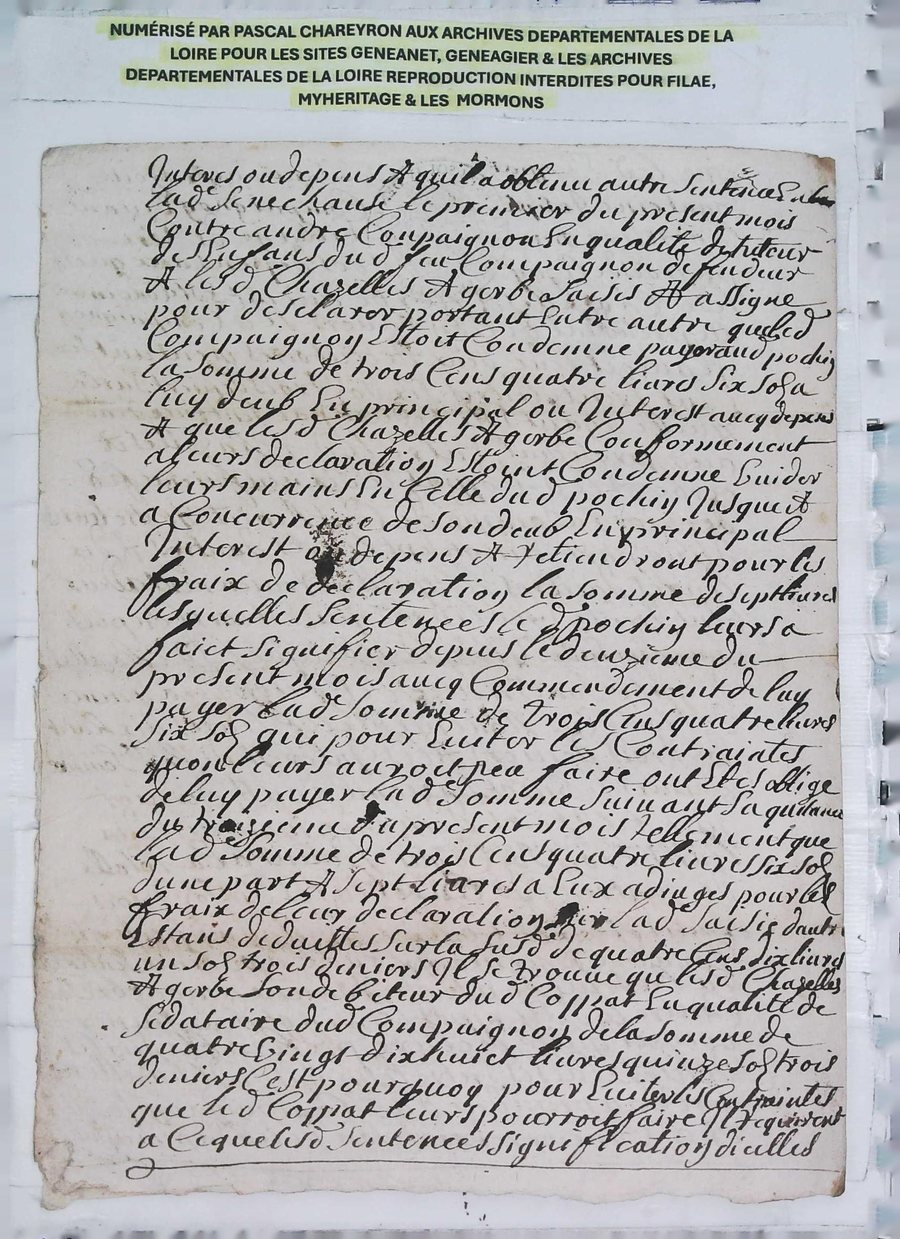 NUMÉRISÉ PAR PASCAL CHAREYRON AUX ARCHIVES DEPARTEMENTALES DE LA
LOIRE POUR LES SITES GENEANET, GENEAGIER & LES ARCHIVES
DEPARTEMENTALES DE LA LOIRE REPRODUCTION INTERDITES POUR FILAE,
MYHERITAGE & LES MORMONS
Interes ou depens Et quil a obtenu autre Sentence En la
lad Senechausé le premier du present mois
Contre andre Conpaignon En qualité de tuteur
des Enfans dud feu Compaignon defendeur
Et lesd Chazelles Et gerbe Saisis Et assigne
pour desclarer portant Entre autre queled
Compaignon Estoit Condemne payer aud pochin
la somme de trois Cens quatre livres Six Solz a
luy deub En principal ou Interest avecq depens
Et que lesd Chazelles Et gerbe Conformement
a leurs declaration Estoint Condemne Vuider
leurs mains En Celle dud pochin Jusques Et
a Concurrence de son deub En principal
Interest ou depens Et retiendront pour les
fraix de declaration la somme de sept livres
lesquelles Sentences led pochin leurs a
faict signifier depuis le deuzieme du
present mois avecq Commendement de luy
payer lad Somme de trois Cens quatre livres
Six Solz qui pour Eviter les Contraintes
quon leurs auroit peu faire ont Etes oblige
de luy payer lad Somme suivant sa quitance
du troizieme du present mois tellement que
lad Somme de trois Cens quatre livres six solz
dune part Et sept livres a Eux adjuges pour les
fraix de leur declaration sur lad Saisie dautre
Estans deduittes sur la susd de quatre Cens dix livres
un solz trois deniers Il se trouve que lesd Chazelles
Et gerbe Son debiteur dud Coppat En qualité de
Sedataire dud Compaignon de la somme de
quatre Vingt dixhuict livres quinze solz trois
deniers Cest pourquoy pour Eviter les Contraintes
que led Coppat leurs pourroit faire Il requirent
a Ce que lesd Sentences signification dicelles